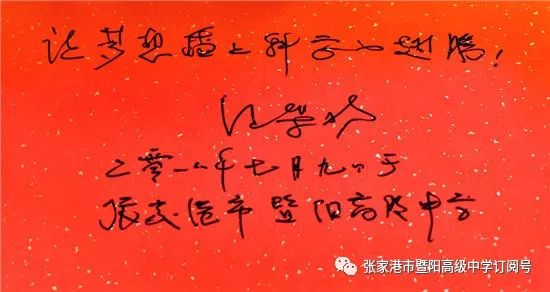 让梦想插上科学的翅膀！
二零一八年七月九日于
张家港市暨阳高级中学
张家港市暨阳高级中学订阅号